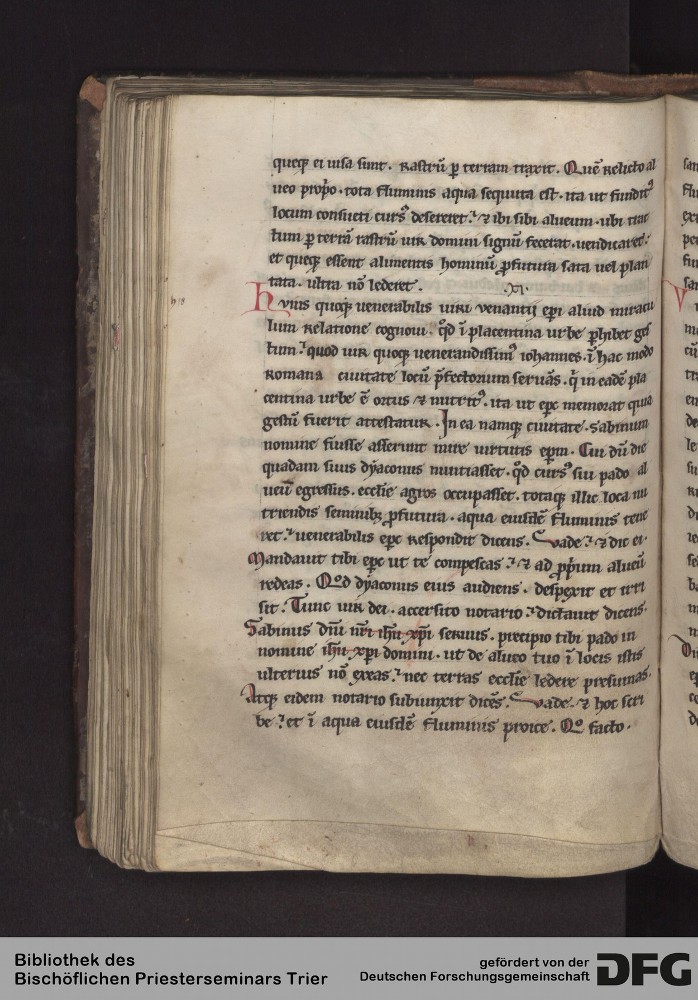 queq; ei uisa sunt. Rastrū p̱ terram traxit. Quē Relicto al
ueo prop̓o. tota fluminis aqua sequuta est. ita ut fundit᷒
locum consueti curs᷒ desereret. ⁊ ibi sibi alueum. ubi trac
tum p̱ terrā rastrū uir domini signū fecerat. uendicaret.
et queq; essent alimentis hominū ꝓfutura sata uel plan
tata. ultra nō lederet. .xi.
h18
Huius quoq; uenerabilis uiri uenantij ep̄i aliud miracu
lum Relatione cognoui. qd̄ ī placentina urbe p̱hibet ges
tum. quod uir quoq; uenerandissim᷒ iohannes. ī hac modo
Romana ciuitate locū p̄fectorum seruās. q̄ in eadē pla
centina urbe ē ortus ⁊ nutrit᷒. ita ut ep̄c memorat quia
gestū fuerit attestatur. In ea namq; ciuitate. sabinum
nomine fuisse asserunt mire uirtutis ep̄m. Cui dū die
quadam suus dyaconus nuntiasset. qd̄ curs᷒ sui pado al
ueū egressus. ecclīe agros occupasset. totaq; illic loca nu
triendis seminib; ꝓfutura. aqua eiusdē fluminis tene
ret. uenerabilis ep̄c Respondit dicens. Vade ⁊ dic ei.
Mandauit tibi ep̄c ut te compescas. ⁊ ad pp̄um alueū
redeas. Qod dyaconus eius audiens. despexit et irri
sit. Tunc uir dei. accersito notario dictauit dicens.
Sabinus dn̄i nr̄i ih̄u xp̄i seruus. precipio tibi pado in
nomine ih̄u xp̄i domini. ut de alueo tuo ī locis istis
ulterius nō exeas. nec terras ecclīe ledere presumas.
Atq; eidem notario subiunxit dicēs. Vade. ⁊ hoc scri
be. et ī aqua eiusdē fluminis proice. Qo facto.
Bibliothek des
Bischöflichen Priesterseminars Trier
gefördert von der
Deutschen Forschungsgemeinschaft
DFG